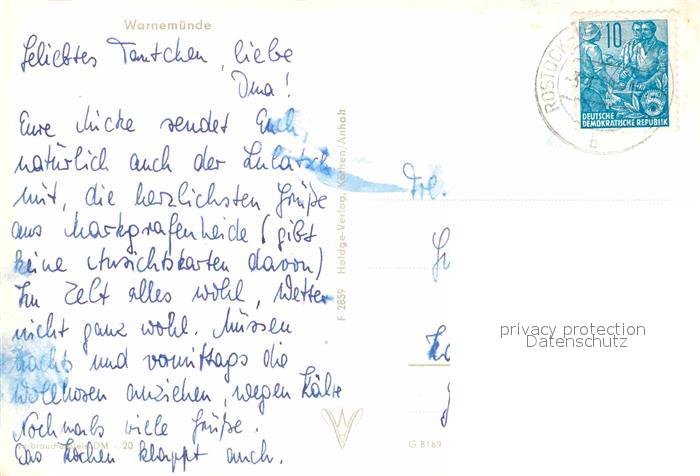 Warnemünde
Geliebtes Tantchen, liebe
Oma!
Eure Micke sendet Euch,
natürlich auch der Lulatsch
mit, die herzlichsten Grüße
aus Markgrafenheide (gibt
keine Ansichtskarten davon)
Im Zelt alles wohl, Wetter
nicht ganz wohl. Müssen
nachts und vormittags die
Wollhosen anziehen, wegen Kälte
Nochmals viele Grüße.
Das Kochen klappt auch.
Verbraucherpreis DM -.20
F 2859 Heldge-Verlag, Köthen/Anhalt
G 8169
Frl.
ROSTOCK
b
10
DEUTSCHE
DEMOKRATISCHE REPUBLIK
privacy protection
Datenschutz